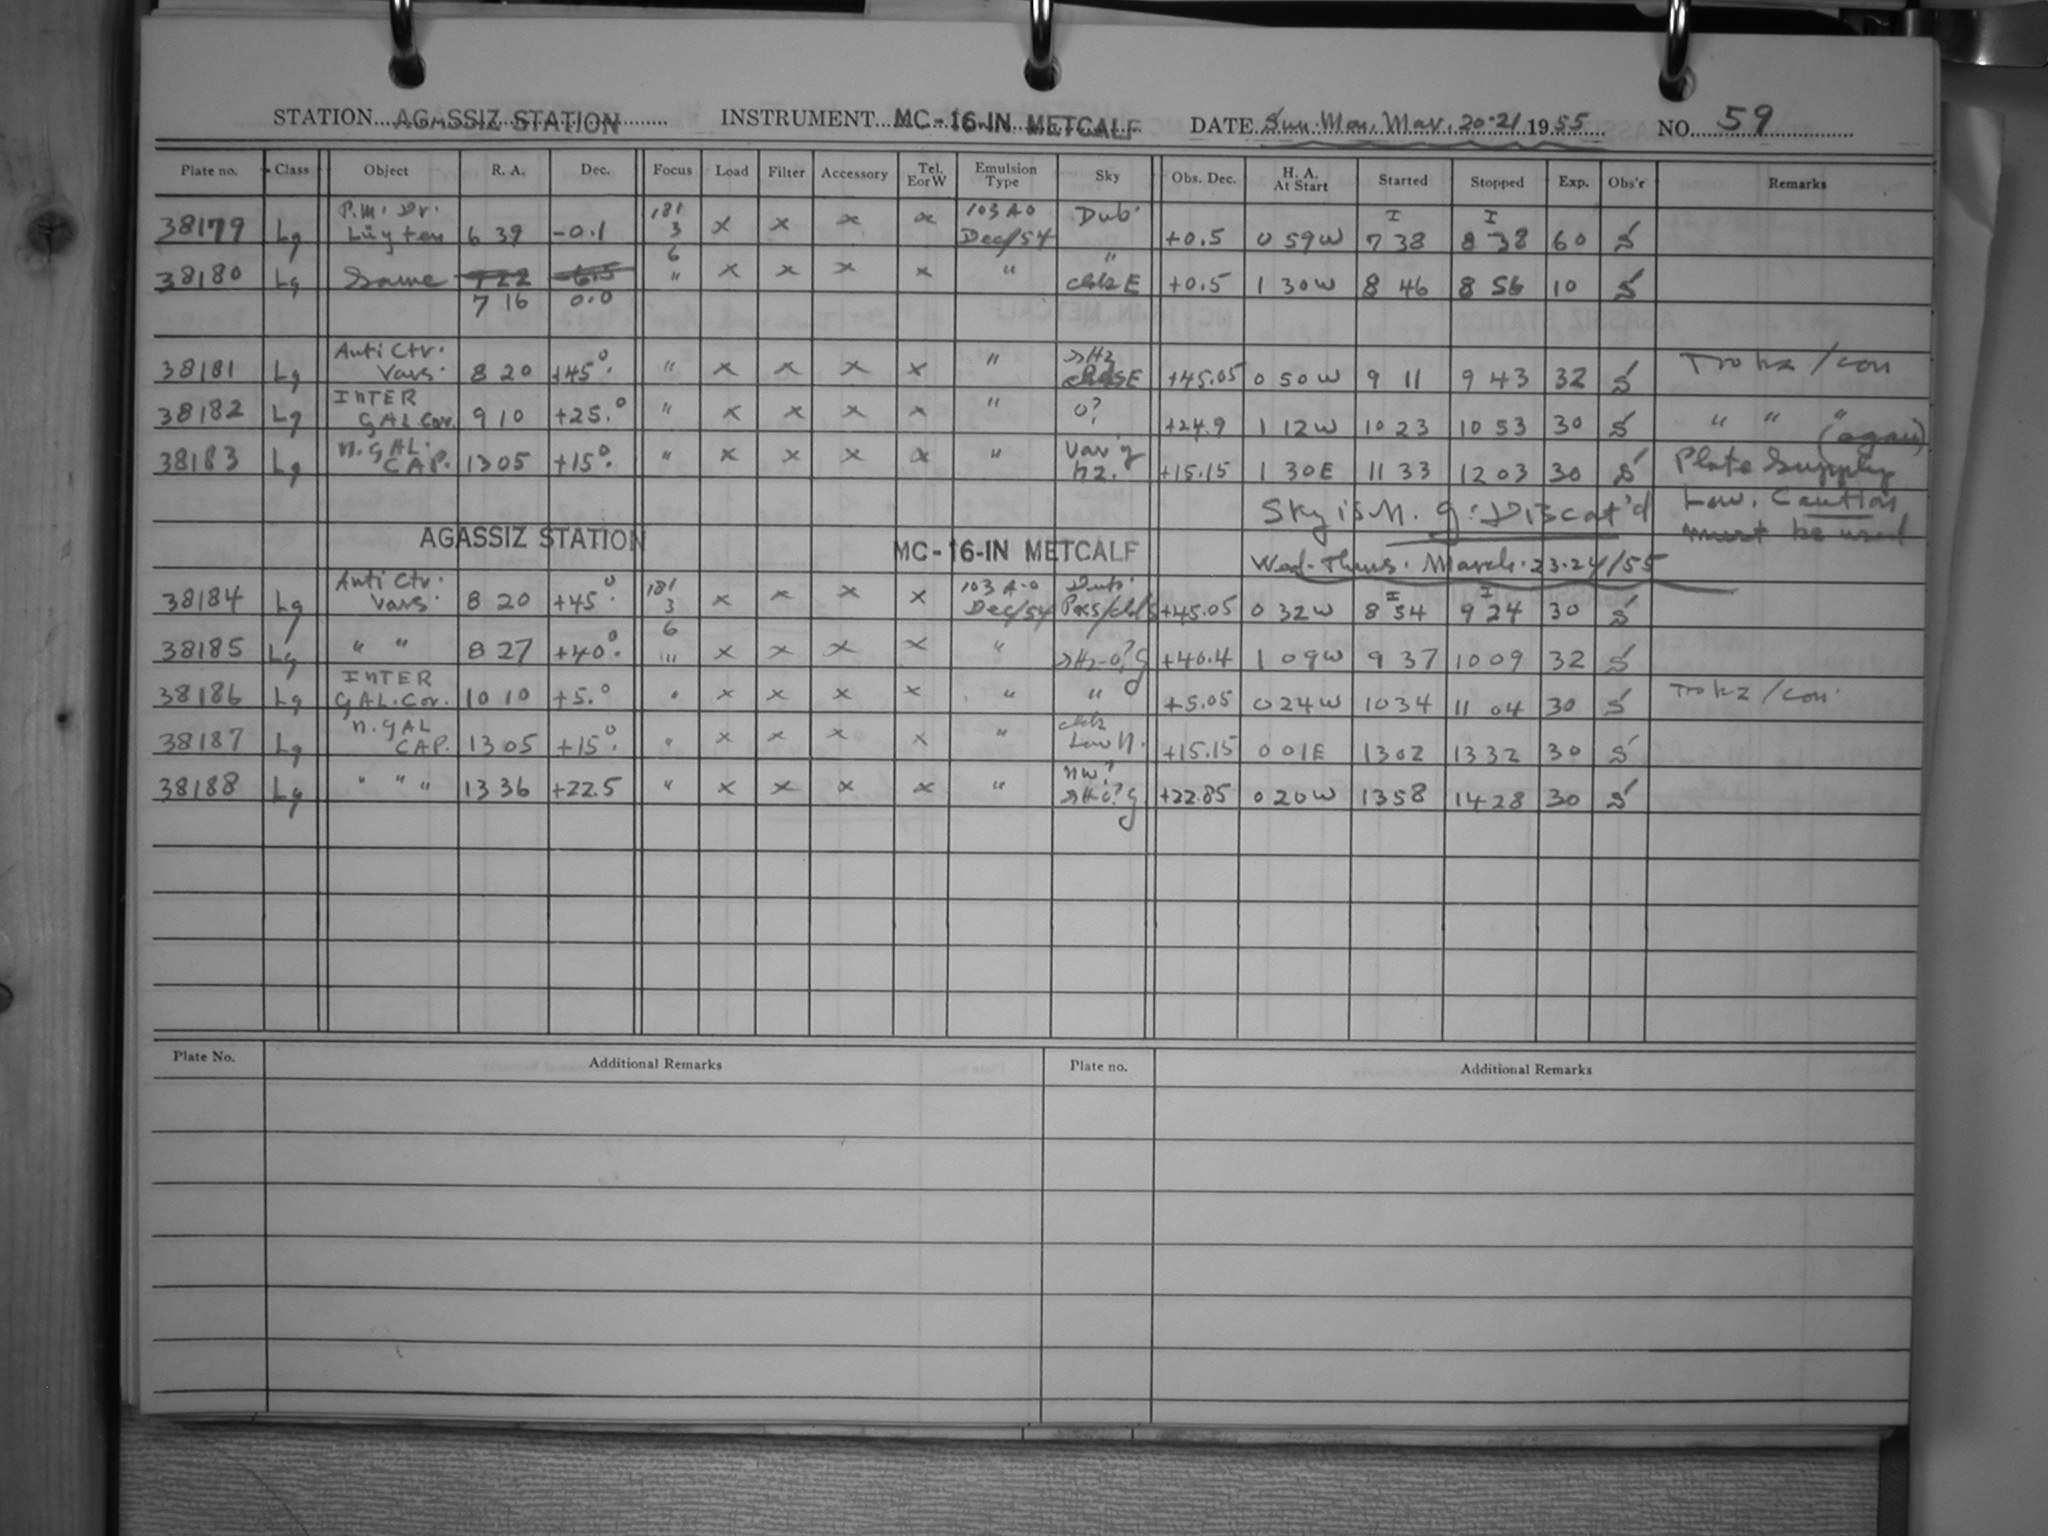 STATION AGASSIZ STATION INSTRUMENT MC-16-IN METCALF DATE Sun. Mon. Mar. 20-21 1955 NO. 59
Plate no. Class Object R. A. Dec. Focus Load Filter Accessory Tel. E or W Emulsion Type Sky Obs. Dec. H. A. At Start Started Stopped Exp. Obs'r Remarks
P.M. Dr. 181 103 A-O Dub. I I
38179 Lg Lüyten 6 39 -0.1 3 x x x x Dec/54 +0.5 0 59W 7 38 8 38 60 S
6 "
38180 Lg Same 7 22 -6.5 " x x x x " E +0.5 1 30W 8 46 8 56 10 S
7 16 0.0
Anti Ctr.
38181 Lg Vars. 8 20 +45°. " x x x x " +45.05 0 50W 9 11 9 43 32 S
INTER
38182 Lg GAL.Cor. 9 10 +25.° " x x x x " o? +24.9 1 12W 10 23 10 53 30 S " " "
N.GAL. Var'g (again)
38183 Lg CAP. 13 05 +15°. " x x x x " hz. +15.15 1 30E 11 33 12 03 30 S Plate Supply
Sky is N. g: Discat'd Low. Caution
must be used
AGASSIZ STATION MC-16-IN METCALF Wed-Thurs. March. 23-24/55
Anti Ctr. 181 103 A-O Dub. I I
38184 Lg Vars. 8 20 +45°. 3 x x x x Dec/54 +45.05 0 32W 8 54 9 24 30 S
6
38185 Lg " " 8 27 +40°. " x x x x " +40.4 1 09W 9 37 10 09 32 S
INTER
38186 Lg GAL.Cor. 10 10 +5.° " x x x x " " +5.05 0 24W 10 34 11 04 30 S
N.GAL
38187 Lg CAP. 13 05 +15°. " x x x x " Low N. +15.15 0 01E 13 02 13 32 30 S
NW?
38188 Lg " " " 13 36 +22.5 " x x x x " +22.85 0 20W 13 58 14 28 30 S
Plate No. Additional Remarks Plate no. Additional Remarks